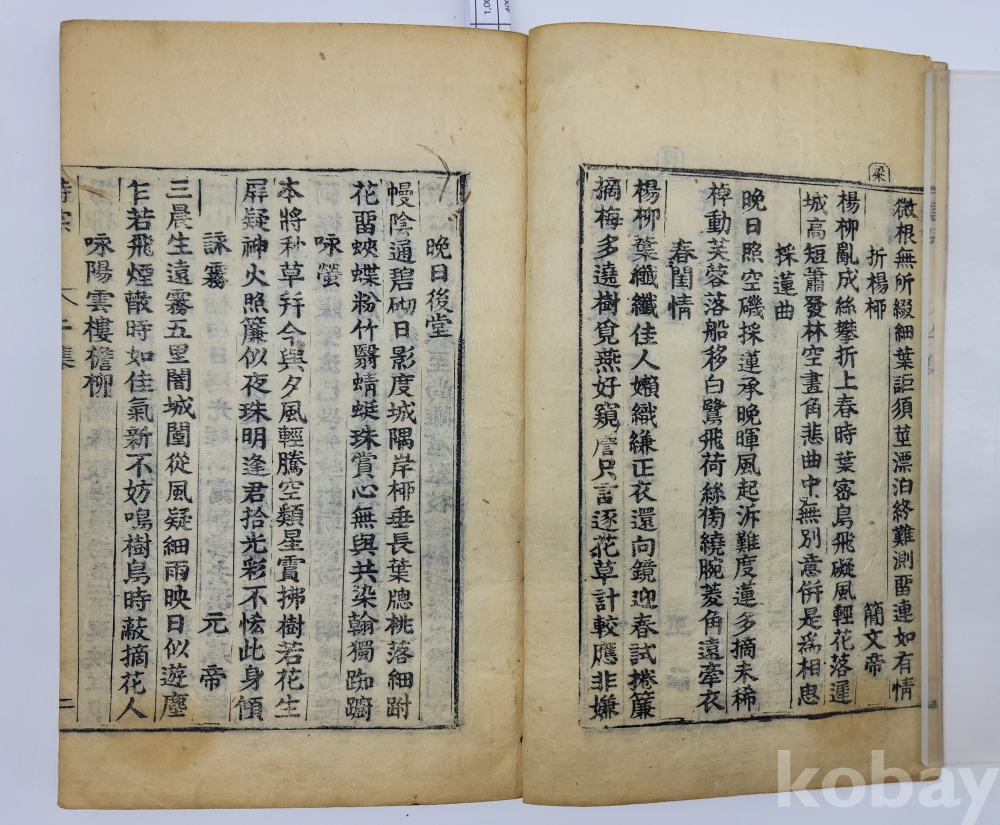 梁
微根無所綴細葉詎須莖漂泊終難測畱連如有情
折楊柳 簡文帝
楊柳亂成絲攀折上春時葉密鳥飛礙風輕花落遲
城高短簫發林空畫角悲曲中無別意併是爲相思
採蓮曲
晩日照空磯採蓮承晩暉風起泝難度蓮多摘未稀
棹動芙蓉落船移白鷺飛荷絲傍繞腕菱角遠牽衣
春閨情
楊柳葉纖纖佳人嬾織縑正衣還向鏡迎春試捲簾
摘梅多遶樹覓燕好窺簷只言逐花草計較應非嫌
晩日後堂
幔陰通碧砌日影度城隅岸柳垂長葉牕桃落細跗
花畱蛺蝶粉竹翳蜻蜓珠賞心無與共染翰獨踟躕
咏螢
本將秋草幷今與夕風輕騰空類星霣拂樹若花生
屛疑神火照簾似夜珠明逢君拾光彩不恡此身傾
詠霧 元帝
三晨生遠霧五里闇城闉從風疑細雨映日似遊塵
乍若飛煙散時如佳氣新不妨鳴樹鳥時蔽摘花人
咏陽雲樓檐柳
二
kobay